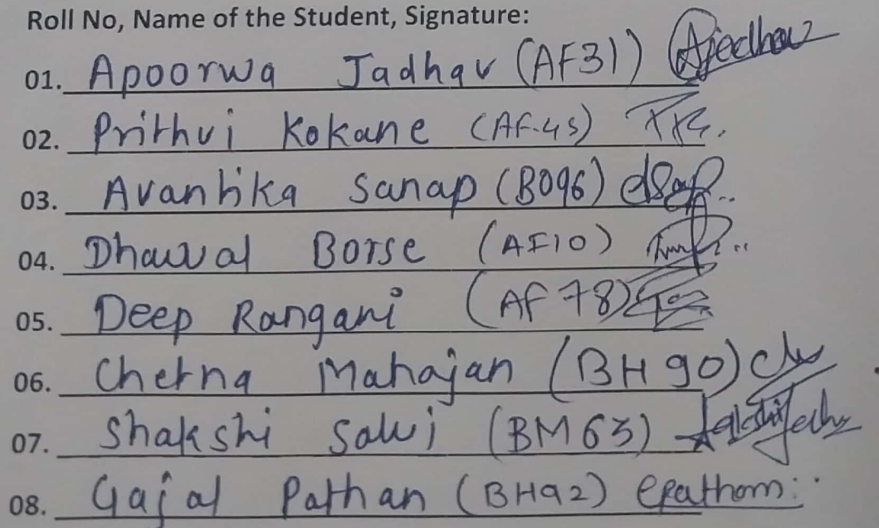 Roll No, Name of the Student, Signature:
01. Apoorwa Jadhav (AF31) Ajadhav
02. Prithvi Kokane (AF-45)
03. Avantika Sanap (B096)
04. Dhawal Borse (AF10)
05. Deep Rangani (AF 78)
06. Chetna Mahajan (BH 90)
07. Shakshi Salvi (BM 63)
08. Gajal Pathan (BH92)